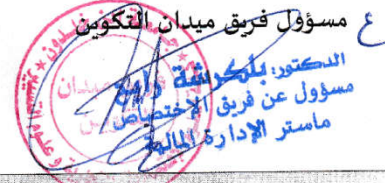 ع مسؤول فريق ميدان التكوين
الدكتور: بلكرشة رابح
مسؤول عن فريق الإختصاص
ماستر الإدارة المالية
ميدان